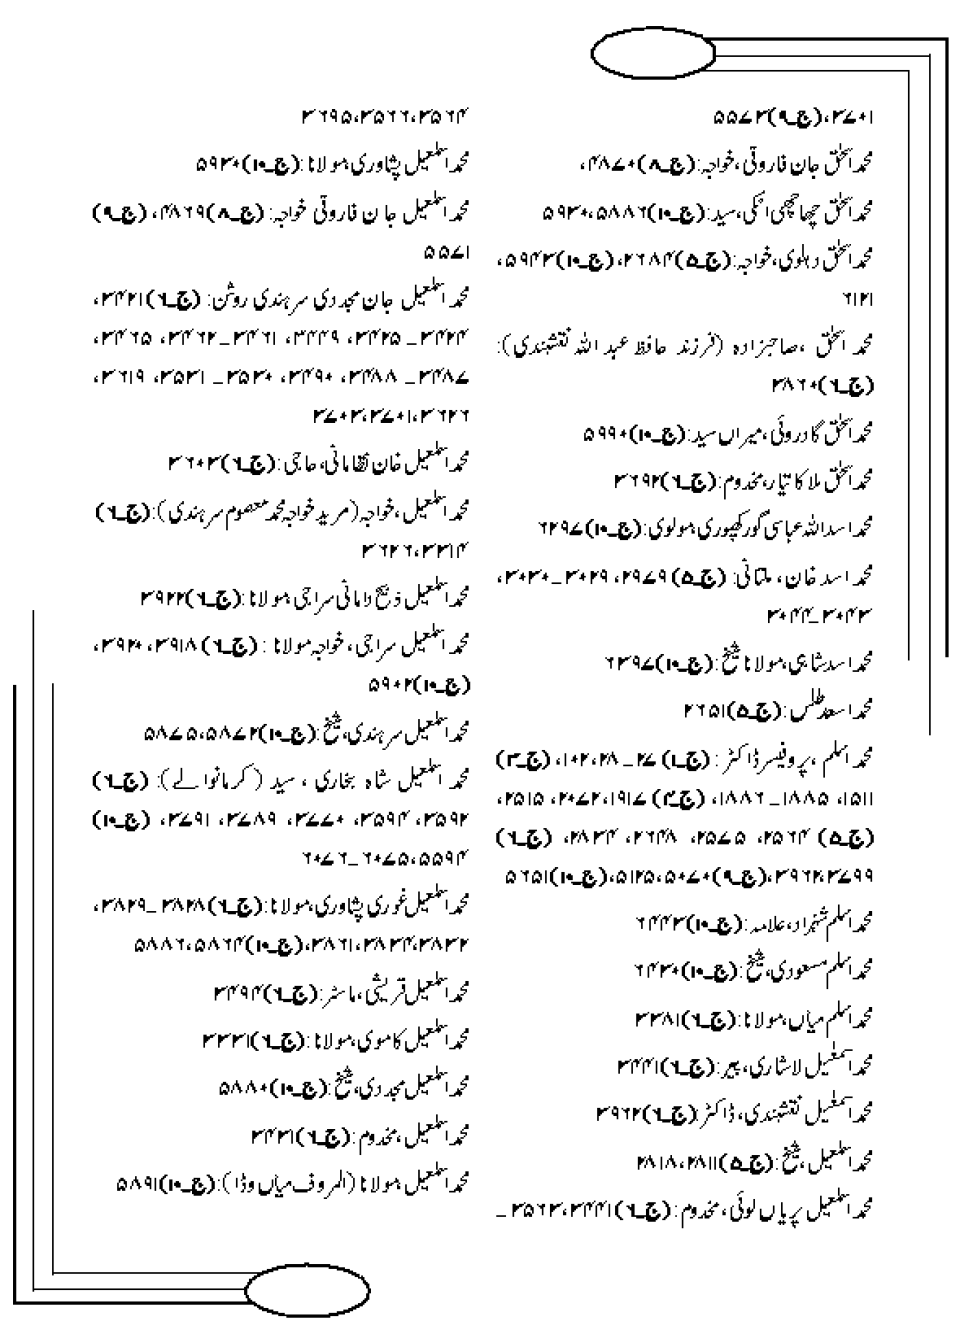 ۳۷۰۱، (ج۔۹) ۵۵۷۳
محمد اسحٰق جان فاروقی، خواجہ: (ج۔۸) ۴۸۷۰،
محمد اسحٰق چھاچھی اٹکی، سید: (ج۔۱۰) ۵۸۸۶، ۵۹۳۰
محمد اسحٰق دہلوی، خواجہ: (ج۔۵) ۲۶۸۴، (ج۔۱۰) ۵۹۴۳،
۶۱۲۱
محمد اسحٰق ، صاحبزادہ (فرزند حافظ عبد اللہ نقشبندی):
(ج۔۶) ۳۸۶۰
محمد اسحٰق گادروئی، میراں سید: (ج۔۱۰) ۵۹۹۰
محمد اسحٰق ملا کاتیار، مخدوم: (ج۔۶) ۳۶۹۲
محمد اسد اللہ عباسی گورکھپوری، مولوی: (ج۔۱۰) ۶۲۹۷
محمد اسد خان، ملتانی: (ج۔۵) ۲۹۷۹، ۳۰۲۹ـ۳۰۳۰،
۳۰۴۳ـ۳۰۴۴
محمد اسد شاہی، مولانا شیخ: (ج۔۱۰) ۶۳۹۷
محمد اسعد طلس: (ج۔۵) ۲۶۵۱
محمد اسلم ، پروفیسر ڈاکٹر : (ج۔۱) ۲۷ـ ۲۸، ۱۰۲، (ج۔۳)
۱۵۱۱، ۱۸۸۵ـ ۱۸۸۶، (ج۔۴) ۱۹۱۷، ۲۰۷۲، ۲۵۱۵،
(ج۔۵) ۲۵۶۴، ۲۵۷۵، ۲۶۴۸، ۲۸۳۴، (ج۔۶)
۳۷۹۹، ۳۹۶۲، (ج۔۹) ۵۰۷۰، ۵۱۲۵، (ج۔۱۰) ۵۶۵۱
محمد اسلم شہزاد، علامہ: (ج۔۱۰) ۶۴۴۳
محمد اسلم مسعودی، شیخ: (ج۔۱۰) ۶۴۳۰
محمد اسلم میاں، مولانا: (ج۔۶) ۳۳۸۱
محمد اسمٰعیل لاشاری، پیر: (ج۔۶) ۳۴۴۱
محمد اسمٰعیل نقشبندی، ڈاکٹر: (ج۔۶) ۳۹۶۲
محمد اسمٰعیل، شیخ: (ج۔۵) ۲۸۱۱، ۲۸۱۸
محمد اسمٰعیل پریاں لوئی، مخدوم: (ج۔۶) ۳۴۴۱، ۳۵۶۳ـ
۳۵۶۴، ۳۵۶۶، ۳۶۹۵
محمد اسمٰعیل پشاوری، مولانا: (ج۔۱۰) ۵۹۳۰
محمد اسمٰعیل جان فاروقی خواجہ: (ج۔۸) ۴۸۶۹، (ج۔۹)
۵۵۷۱
محمد اسمٰعیل جان مجددی سرہندی روشن: (ج۔۶) ۳۴۲۱،
۳۴۲۴ـ ۳۴۲۵، ۳۴۴۹، ۳۴۶۱ـ۳۴۶۲، ۳۴۶۵،
۳۴۸۷ـ ۳۴۸۸، ۳۴۹۰، ۳۵۳۰ـ ۳۵۳۱، ۳۶۱۹،
۳۶۲۶، ۳۷۰۱، ۳۷۰۳
محمد اسمٰعیل خان نظامانی، حاجی: (ج۔۶) ۳۶۰۳
محمد اسمٰعیل، خواجہ (مرید خواجہ محمد معصوم سرہندی): (ج۔۶)
۳۳۱۴، ۳۶۲۶
محمد اسمٰعیل ذبیح دامانی سراجی، مولانا: (ج۔۶) ۳۹۲۲
محمد اسمٰعیل سراجی، خواجہ مولانا : (ج۔۶) ۳۹۱۸، ۳۹۲۰،
(ج۔۱۰) ۵۹۰۲
محمد اسمٰعیل سرہندی، شیخ: (ج۔۱۰) ۵۸۷۲، ۵۸۷۵
محمد اسمٰعیل شاہ بخاری ، سید (کرمانوالے): (ج۔۶)
۳۵۹۲، ۳۵۹۴، ۳۷۷۰، ۳۷۸۹، ۳۷۹۱، (ج۔۱۰)
۵۵۹۴، ۶۰۷۵ـ۶۰۷۶
محمد اسمٰعیل غوری پشاوری، مولانا: (ج۔۶) ۳۸۲۸ـ۳۸۲۹،
۳۸۳۲، ۳۸۳۴، ۳۸۶۱، (ج۔۱۰) ۵۸۶۴، ۵۸۸۶
محمد اسمٰعیل قریشی، ماسٹر: (ج۔۶) ۳۴۹۴
محمد اسمٰعیل کاموی، مولانا: (ج۔۶) ۳۳۳۱
محمد اسمٰعیل مجددی، شیخ: (ج۔۱۰) ۵۸۸۰
محمد اسمٰعیل، مخدوم: (ج۔۶) ۳۴۳۱
محمد اسمٰعیل، مولانا (المروف میاں وڈا): (ج۔۱۰) ۵۸۹۱